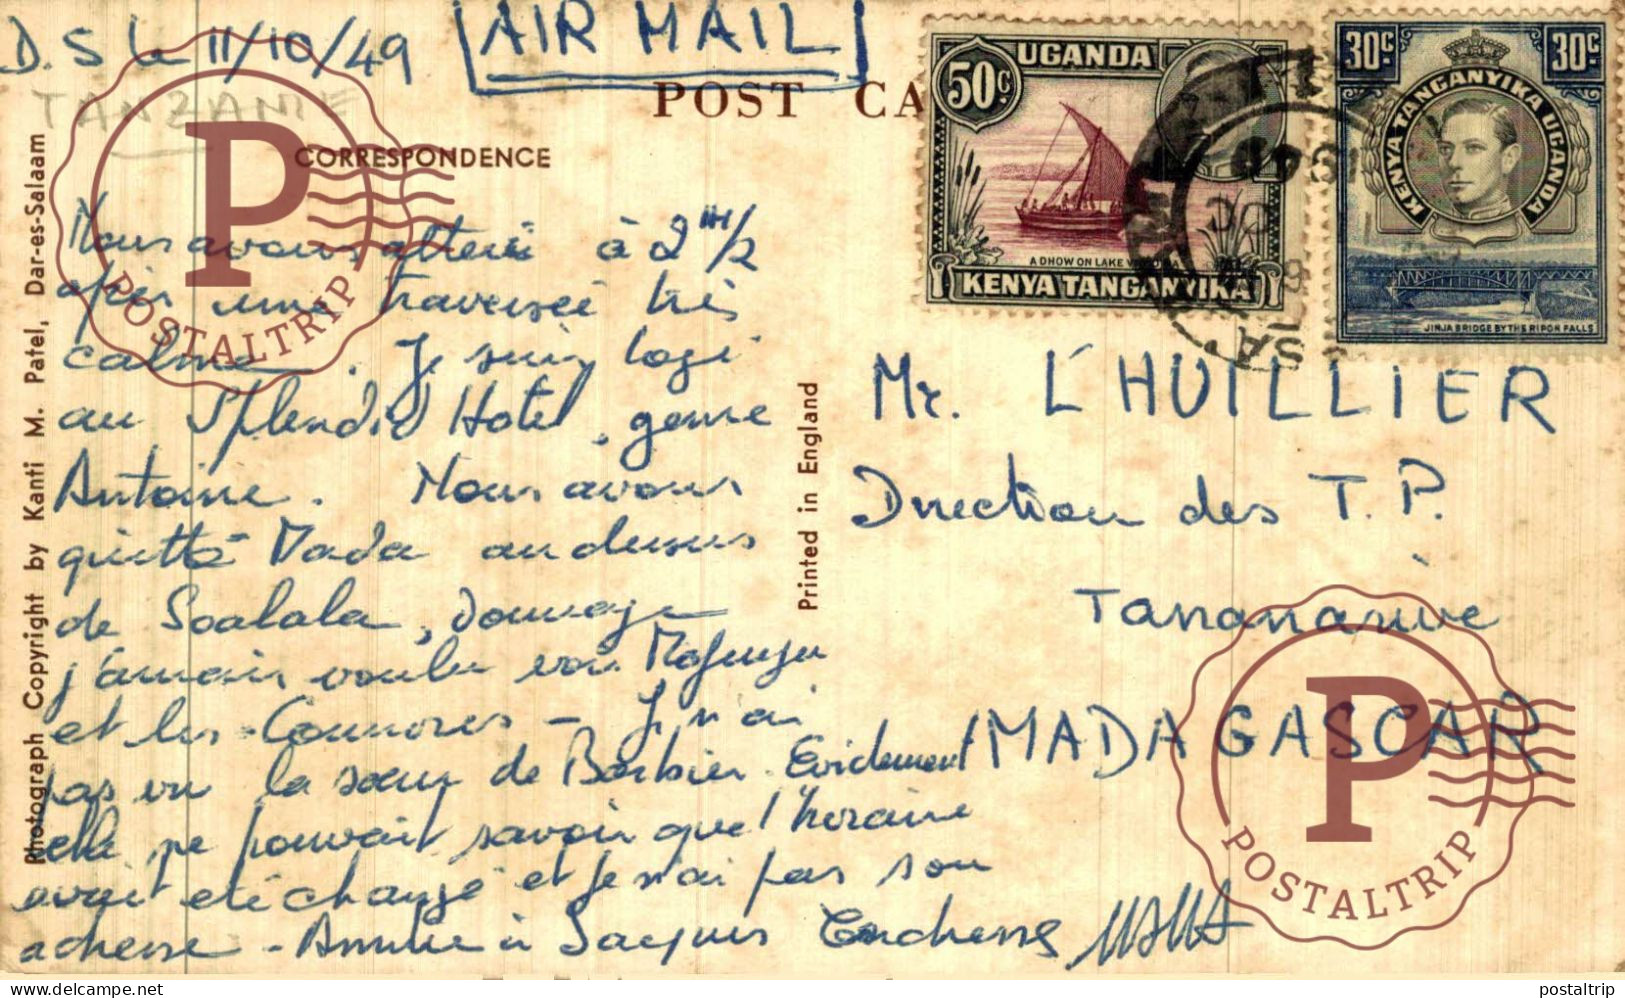 D. S le 11/10/49
AIR MAIL
TANZANIE
POST CA
CORRESPONDENCE
Nous avons atterri à 2 H 1/2
après une traversée très
calme. Je suis logé
au Splendid Hotel, genre
Antoine. Nous avons
quitté Mada au dessus
de Soalala, dommage
j'aurais voulu voir
et les Comores - Je n'ai
pas vu la sœur de Barbier. Evidement
elle ne pouvait savoir que l'horaire
avait été changé et je n'ai pas son
adresse - à Jacques
Photograph Copyright by Kanti M. Patel, Dar-es-Salaam
Printed in England
50C.
UGANDA
A DHOW ON LAKE VICTORIA
KENYA TANGANYIKA
30C
30C
KENYA TANGANYIKA UGANDA
JINJA BRIDGE BY THE RIPON FALLS
Mr. L'HUILLIER
Direction des T. P.
Tananarive
MADAGASCAR
P
POSTALTRIP
P
POSTALTRIP
delcampe.net
postaltrip